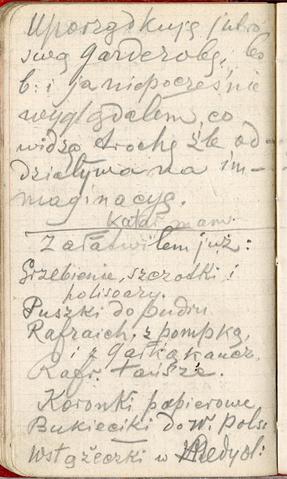 Uporządkuję jutro
swą garderobę, bo
b: i ja niepocześnie
wyglądałem, co
widzę trochę źle od-
działywa na im-
maginacyę.
Katar mam.
Załatwiłem już:
Grzebienie, szczotki i
polisoary.
Puszki do pudru
Rafraich. z pompką,
i z gałką kaucz.
Rafr. tańsze.
Koronki papierowe
Bukieciki do Wi Polsc
Wstążeczki w Medyol: